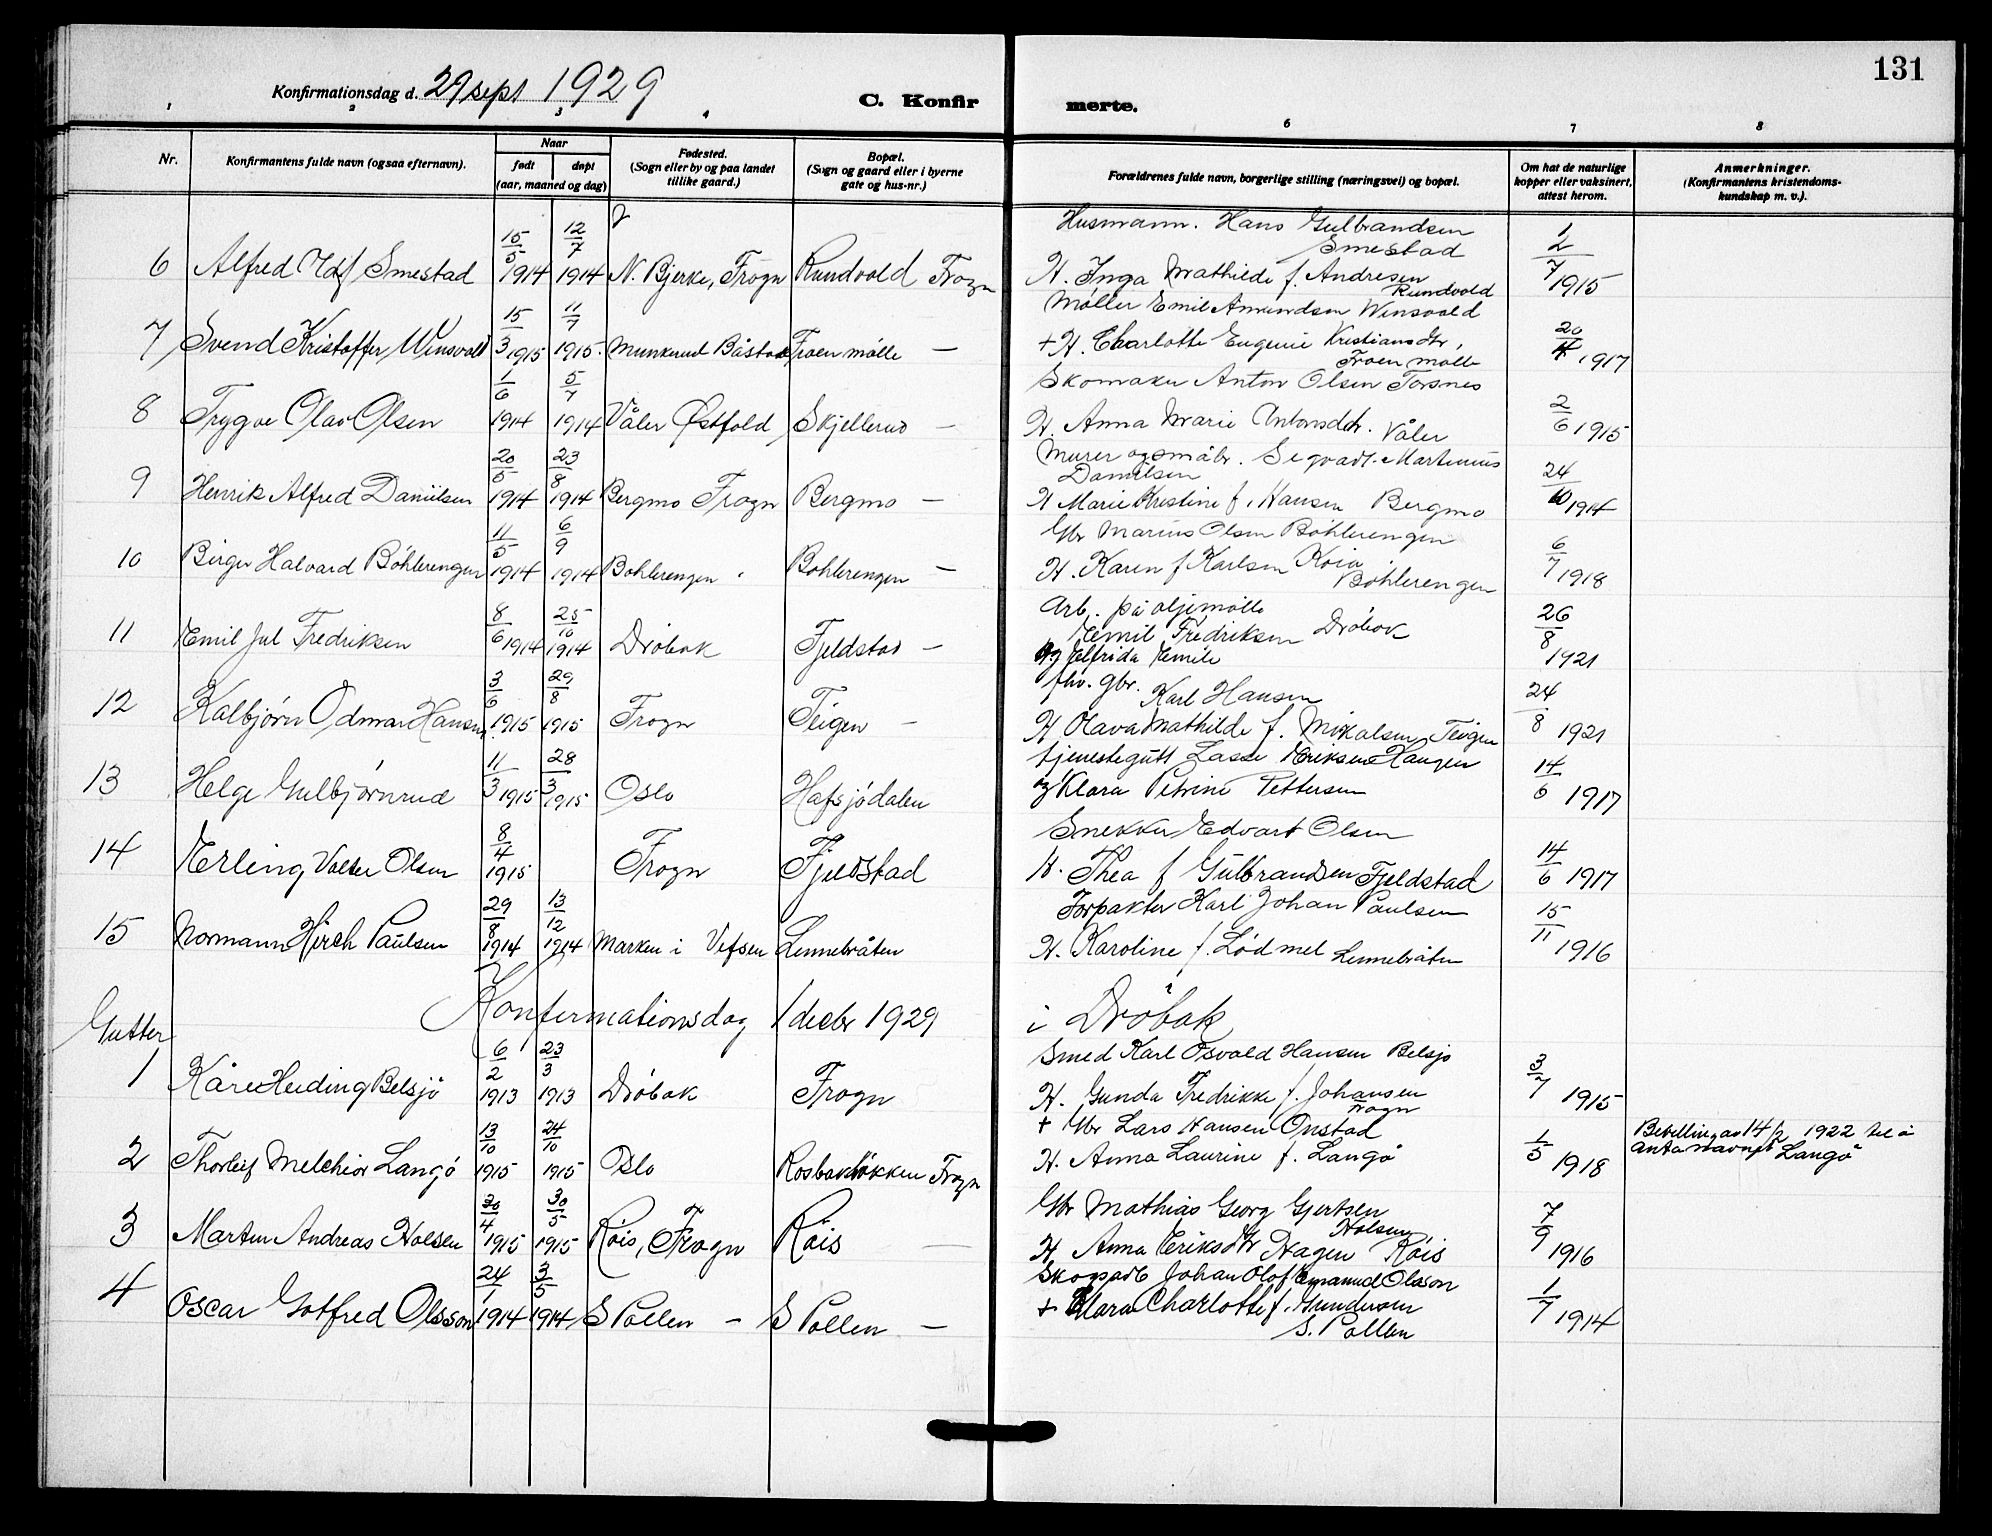 131
Konfirmationsdag d. 29 sept 1929
C. Konfirmerte.
1 2 3 4 6 7 8
Nr.
Konfirmantens fulde navn (ogsaa efternavn).
Naar
født
døpt
(aar, maaned og dag)
Fødested.
(Sogn eller by og paa landet
tillike gaard.)
Bopæl.
(Sogn og gaard eller i byerne
gate og hus-nr.)
Forældrenes fulde navn, borgerlige stilling (næringsvei) og bopæl.
Om hat de naturlige
kopper eller vaksinert,
attest herom.
Anmerkninger.
(Konfirmantens kristendoms-
kundskap m. v.).
Husmann. Hans Gulbrandsen
Smestad
6 Alfred Smestad 15/5 1914 12/7 1914 N. Bjerke, Frogn Rundvold Frogn
H. Inga Mathilde f. Andresen
Rundvold
1/2 7 1915
Møller Emil Amundsen Winsvold
7 Svend Kristoffer Winsvold 15/3 1915 11/7 1915. Munkerud Båstad Froen mølle —
+ H. Charlotte Eugenie Kristiansdtr,
Froen mølle
20/4 1917
Skomaker Anton Olsen Torsnes
8 Trygve Olav Olsen 1/6 1914 5/7 1914 Våler Østfold Skjellerud —
H. Anna Marie Antonsdtr. Våler
2/6 1915
Murer og småbr. Martinius
Daniilsen
9 Henrik Alfred Daniilsen 20/5 1914 23/8 1914 Bergmo Frogn Bergmo —
H Marie Kristine f. Hansen Bergmo
24/10 1914
Gbr Marius Olsen Böhlerengen
10 Birger Halvard Böhlerengen 11/5 1914 6/9 1914 Bohlerengen Bohlerengen —
H. Karen f Karlsen Koia
Böhlerengen
6/7 1918
Arb. på oljemølle
11 Emil Jul Fredriksen 8/6 1914 25/10 1914 Dröbak Fjeldstad —
Emil Fredriksen Dröbak
og Elfrida Emile
26/8 1921
fhv. gbr. Karl Hansen
12 Kalbjørn Odmar Hansen 3/6 1915 29/8 1915 Frogn Teigen —
H Olava Mathilde f. Mikalsen Teigen
24/8 1921
tjenestegutt Lasse Eriksen Haugen
13 Helge Gulbjørnrud 11/3 1915 28/3 1915 Oslo Hafsjödalen
og Klara Petrine Pettersen
14/6 1917
Snekker Edvart Olsen
14 Erling Valter Olsen 8/4 1915 Frogn Fjeldstad
H. Thea f Gulbrandsen Fjeldstad
14/6 1917
Forpakter Karl Johan Paulsen
15 Normann Hirch Paulsen 29/8 1914 13/12 1914 Marken i Vefsen Linnebråten
H. Karoline f. Lödmel Linnebråten
15/11 1916
Konfirmationsdag 1 decbr 1929 i Dröbak
Gutter
Smed Karl Osvald Hansen Belsjø
1 Kåre Heiding Belsjö 6/2 1913 23/3 1913 Dröbak Frogn
H. Gunda Fredrikke f. Johansen
Frogn
3/7 1915
+ Gbr Lars Hansen Onstad
2 Thorleif Melchior Langö 13/10 1915 24/10 1915 Oslo Frogn
H. Anna Laurine f. Langö
1/5 1918
Bevilling av 14/2 1922 til å
anta navnet Langö
Gbr Mathias Georg Gjertsen
Holsen
3 Martin Andreas Holsen 30/4 1915 30/5 1915 Röis, Frogn Röis —
H Anna Eriksdtr Hagen Röis
7/9 1916
Skogsarb Johan Olof Emanuel Olsson
4 Oscar Gotfred Olsson 24/1 1914 3/5 1914 S Pollen — S Pollen —
+ Klara Charlotte f. Gundersen
S. Pollen
1/7 1914